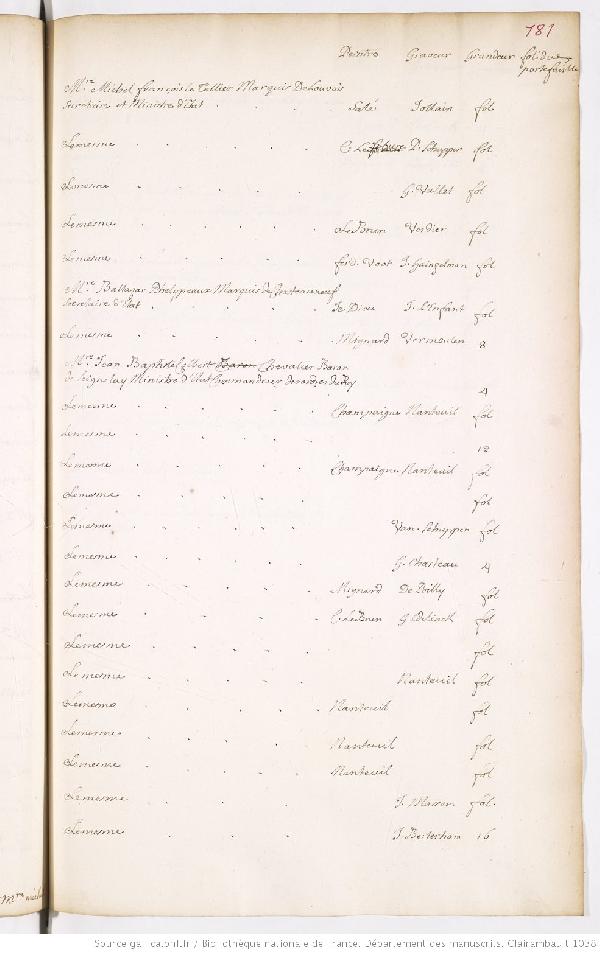 181
Peintre Graveur Grandeur fol. du
portefeuille
Mre Michel françois le Tellier Marquis De Louvois
Secretaire et Ministre d'Etat . . . . Jollain fol
Lemesme . . . . . P. Schupper fol
Lemesme . . . . . G. Vallet fol
Lemesme . . . . . Le Brun Verdier fol
Lemesme . . . . . ferd. Voet J. Hainzelman fol
Mre Baltazar Phelyppeaux Marquis de
Secretaire d'Etat . . . . . J. L'Enfant fol
Lemesme . . . . . Mignard Vermeulen 8
Mre Jean Baptiste Colbert Baron Chevalier Baron
de Seignelay Ministre d'Etat Commandeur des ordres du Roy 4
Lemesme . . . . . Champaigne Nanteuil fol
Lemesme . . . . . 12
Lemesme . . . . . Champaigne Nanteuil fol
Lemesme . . . . . fol
Lemesme . . . . . Van-Schupper fol
Lemesme . . . . . G. Chasteau 4
Lemesme . . . . . Mignard De Poilly fol
Lemesme . . . . . C. Le Brun G. Edelinck fol
Lemesme . . . . . fol
Lemesme . . . . . Nanteuil fol
Lemesme . . . . . Nanteuil fol
Lemesme . . . . . Nanteuil fol
Lemesme . . . . . Nanteuil fol
Lemesme . . . . . fol.
Lemesme . . . . . 16
Mre
Source gallica.bnf.fr / Bibliothèque nationale de France. Département des manuscrits. Clairambault 1038